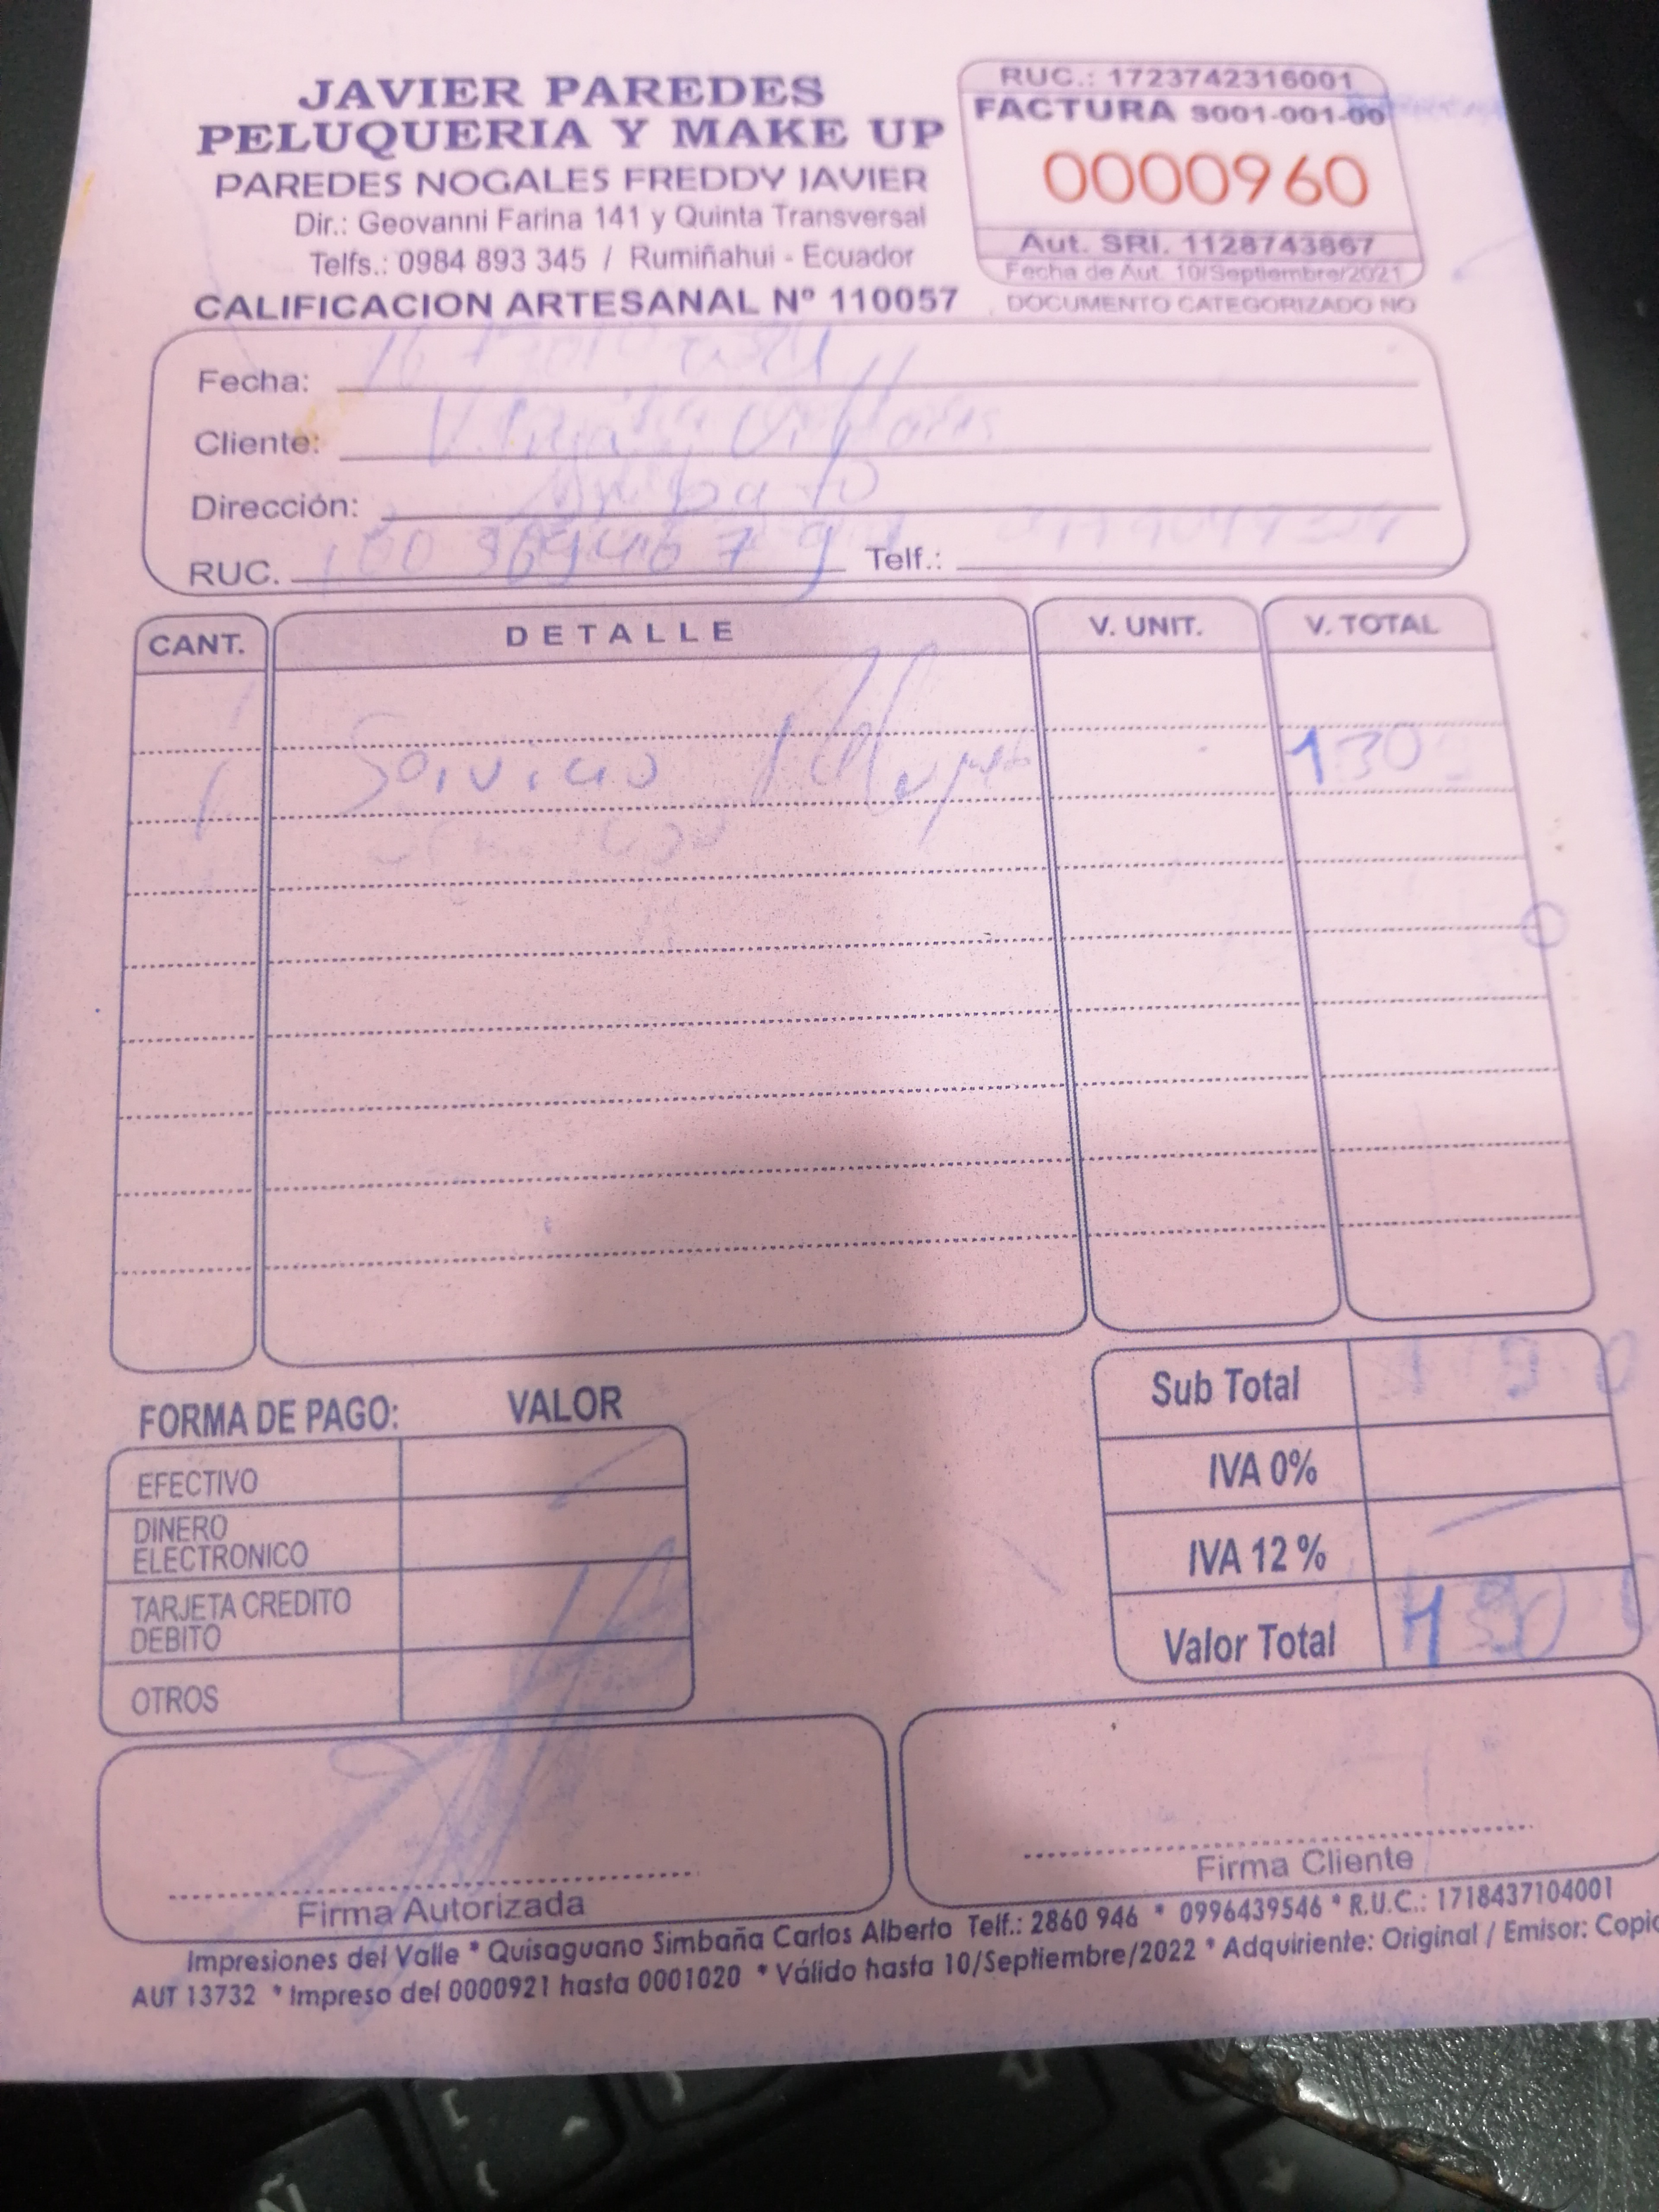 JAVIER PAREDES
PELUQUERIA Y MAKE UP
PAREDES NOGALES FREDDY JAVIER
Dir.: Geovanni Farina 141 y Quinta Transversal
Telfs.: 0984 893 345 / Rumiñahui - Ecuador
CALIFICACION ARTESANAL Nº 110057
RUC.: 1723742316001
FACTURA S001-001-00
0000960
Aut. SRI. 1128743867
Fecha de Aut. 10/Septiembre/2021
DOCUMENTO CATEGORIZADO NO
Fecha: 16
Cliente:
Dirección: Ambato
RUC. Telf.:
CANT. DETALLE V. UNIT. V. TOTAL
1 Servicio 130
Sub Total 130
IVA 0%
IVA 12 %
Valor Total 130
FORMA DE PAGO: VALOR
EFECTIVO
DINERO
ELECTRONICO
TARJETA CREDITO
DEBITO
OTROS
Firma Autorizada
Firma Cliente
Impresiones del Valle * Quisaguano Simbaña Carlos Alberto Telf.: 2860 946 * 0996439546 * R.U.C.: 1718437104001
AUT 13732 * Impreso del 0000921 hasta 0001020 * Válido hasta 10/Septiembre/2022 * Adquiriente: Original / Emisor: Copia